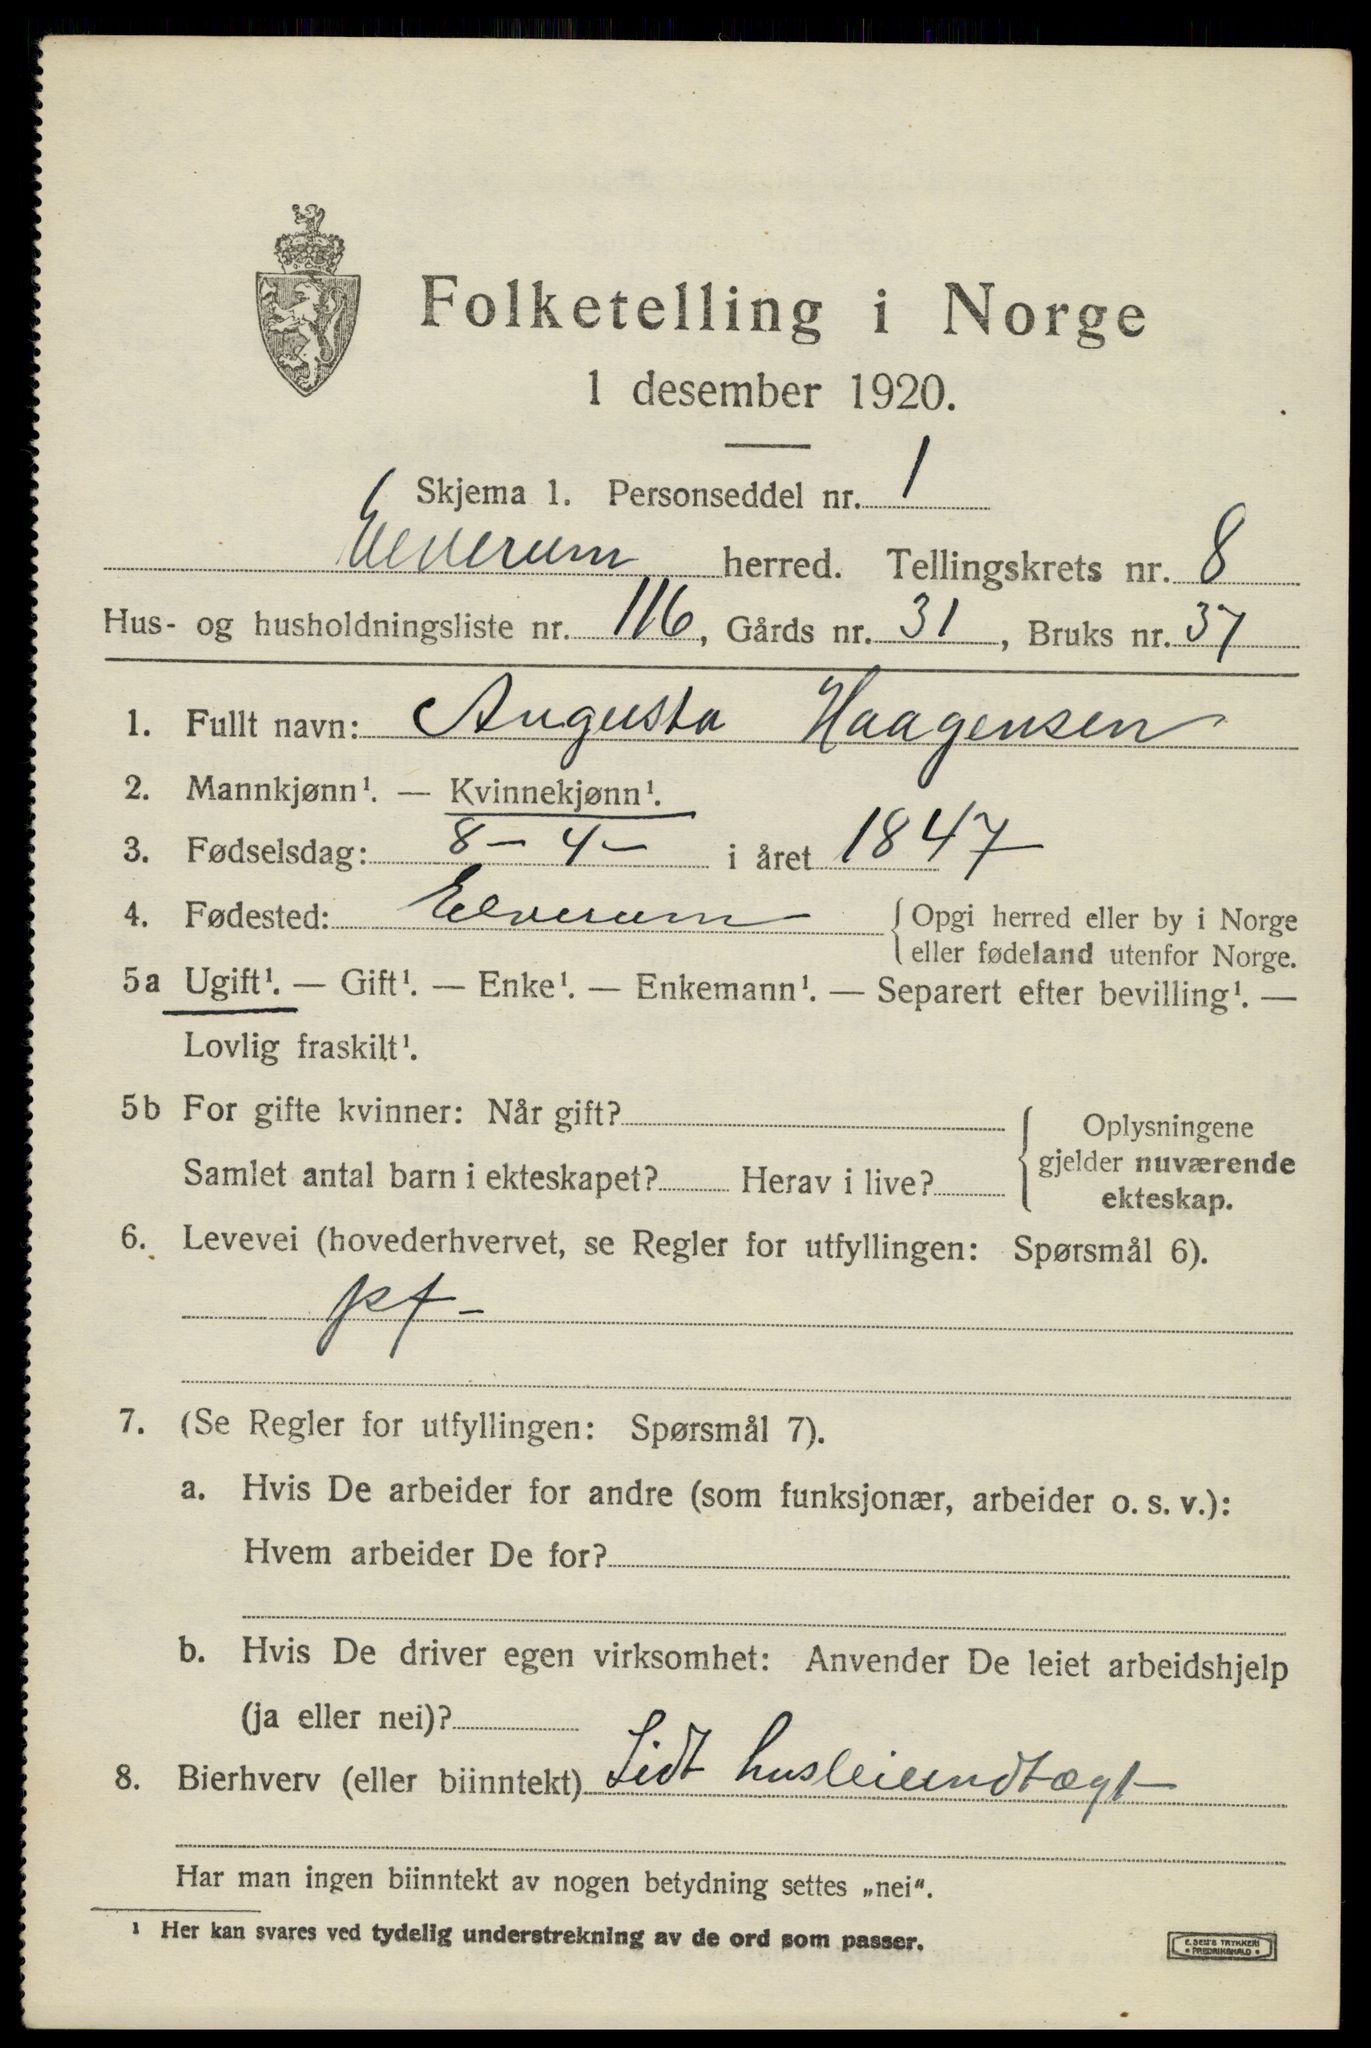 Folketelling i Norge
1 desember 1920.
Skjema 1. Personseddel nr. 1
Elverum herred. Tellingskrets nr. 8
Hus- og husholdningsliste nr. 116, Gårds nr. 31, Bruks nr. 37
1. Fullt navn: Augusta Haagensen
2. Mannkjønn¹. — Kvinnekjønn¹.
3. Fødselsdag: 8-4- i året 1847
4. Fødested: Elverum {Opgi herred eller by i Norge
eller fødeland utenfor Norge.
5a Ugift¹. — Gift¹. — Enke¹. — Enkemann¹. — Separert efter bevilling¹. —
Lovlig fraskilt¹.
5b For gifte kvinner: Når gift? { Oplysningene
gjelder nuværende
Samlet antal barn i ekteskapet? Herav i live?
ekteskap.
6. Levevei (hovederhvervet, se Regler for utfyllingen: Spørsmål 6).
pf-
7. (Se Regler for utfyllingen: Spørsmål 7).
a. Hvis De arbeider for andre (som funksjonær, arbeider o. s. v.):
Hvem arbeider De for?
b. Hvis De driver egen virksomhet: Anvender De leiet arbeidshjelp
(ja eller nei)?
8. Bierhverv (eller biinntekt) Lidt husleieindtægt
Har man ingen biinntekt av nogen betydning settes „nei“.
¹ Her kan svares ved tydelig understrekning av de ord som passer.
E. SEM'S TRYKKERI
• FREDRIKSHALD •